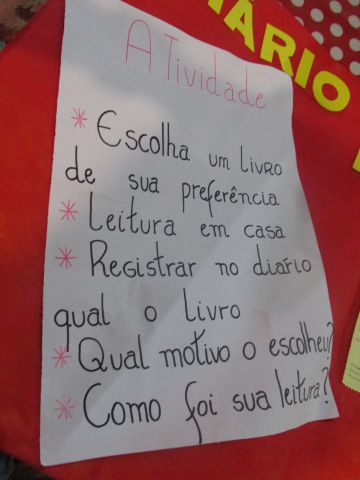 DIÁRIO
ATividade
* Escolha um LIVRO
de sua preferência
* Leitura em casa
* Registrar no diário
qual o Livro
* Qual motivo o escolheu?
* Como foi sua leitura?